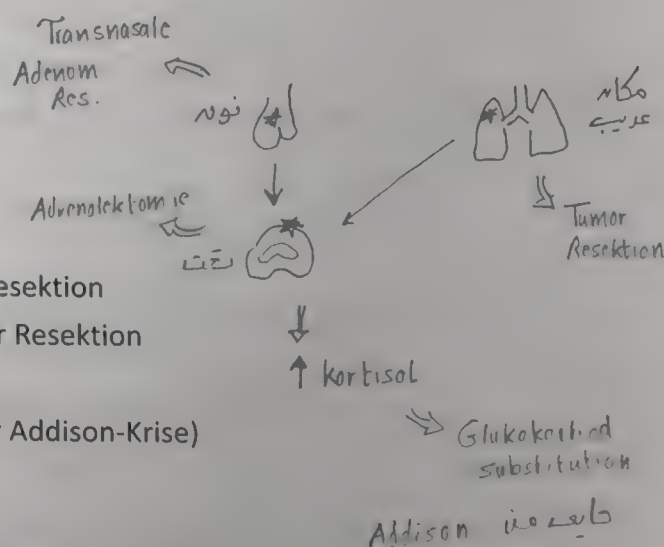 Transnasale
Adenom
Res.
فوق
مكان
غريب
Adrenalektomie
تحت
Tumor
Resektion
esektion
r Resektion
↑ Kortisol
r Addison-Krise)
Glukokortikoid
substitution
Addison